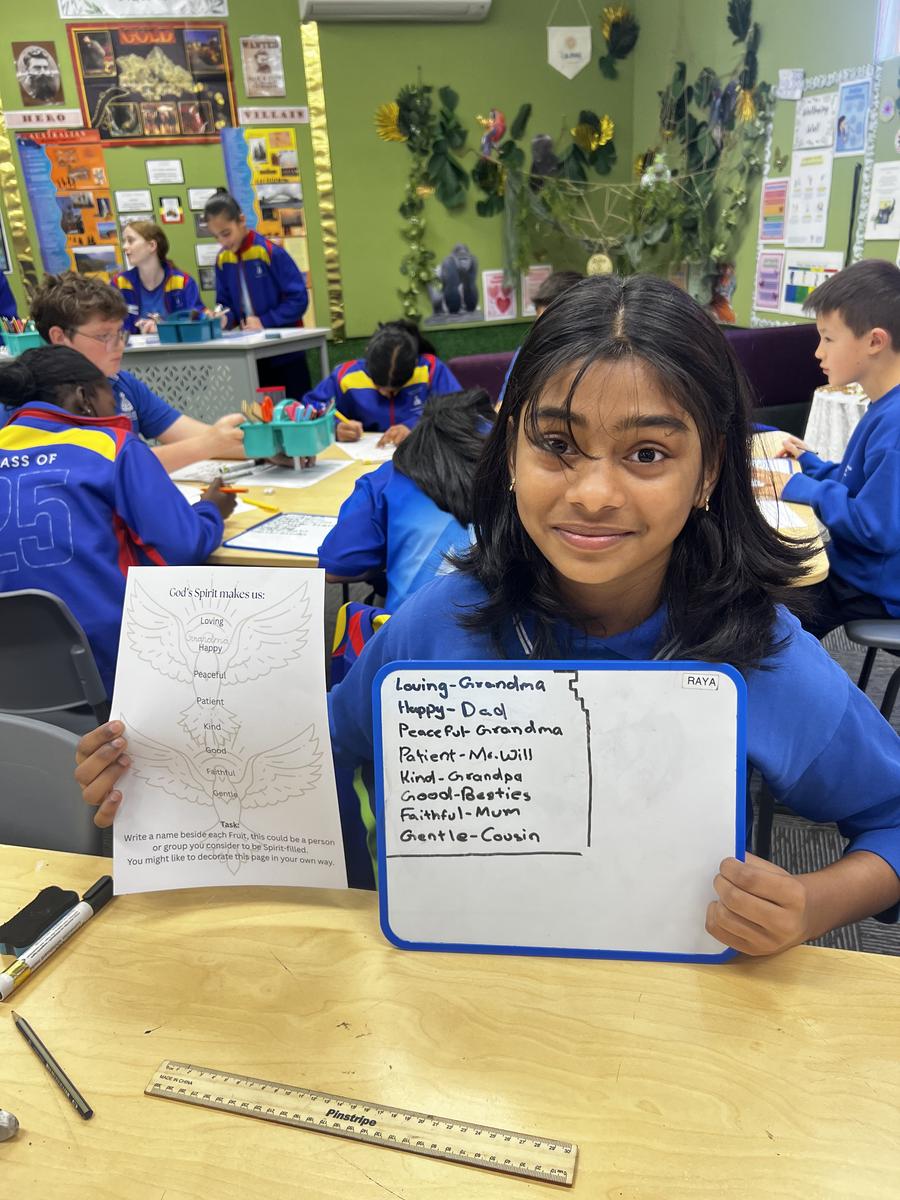 GOLD
WANTED
HERO
VILLAINS
AUSTRALIAN
CLASS OF
25
God's Spirit makes us:
Loving
Grandma
Happy
Peaceful
Patient
Kind
Good
Faithful
Gentle
Task:
Write a name beside each Fruit, this could be a person
or group you consider to be Spirit-filled.
You might like to decorate this page in your own way.
RAYA
Loving-Grandma
Happy-Dad
Peaceful-Grandma
Patient-Mr.Will
Kind-Grandpa
Good-Besties
Faithful-Mum
Gentle-Cousin
MADE IN CHINA
Pinstripe